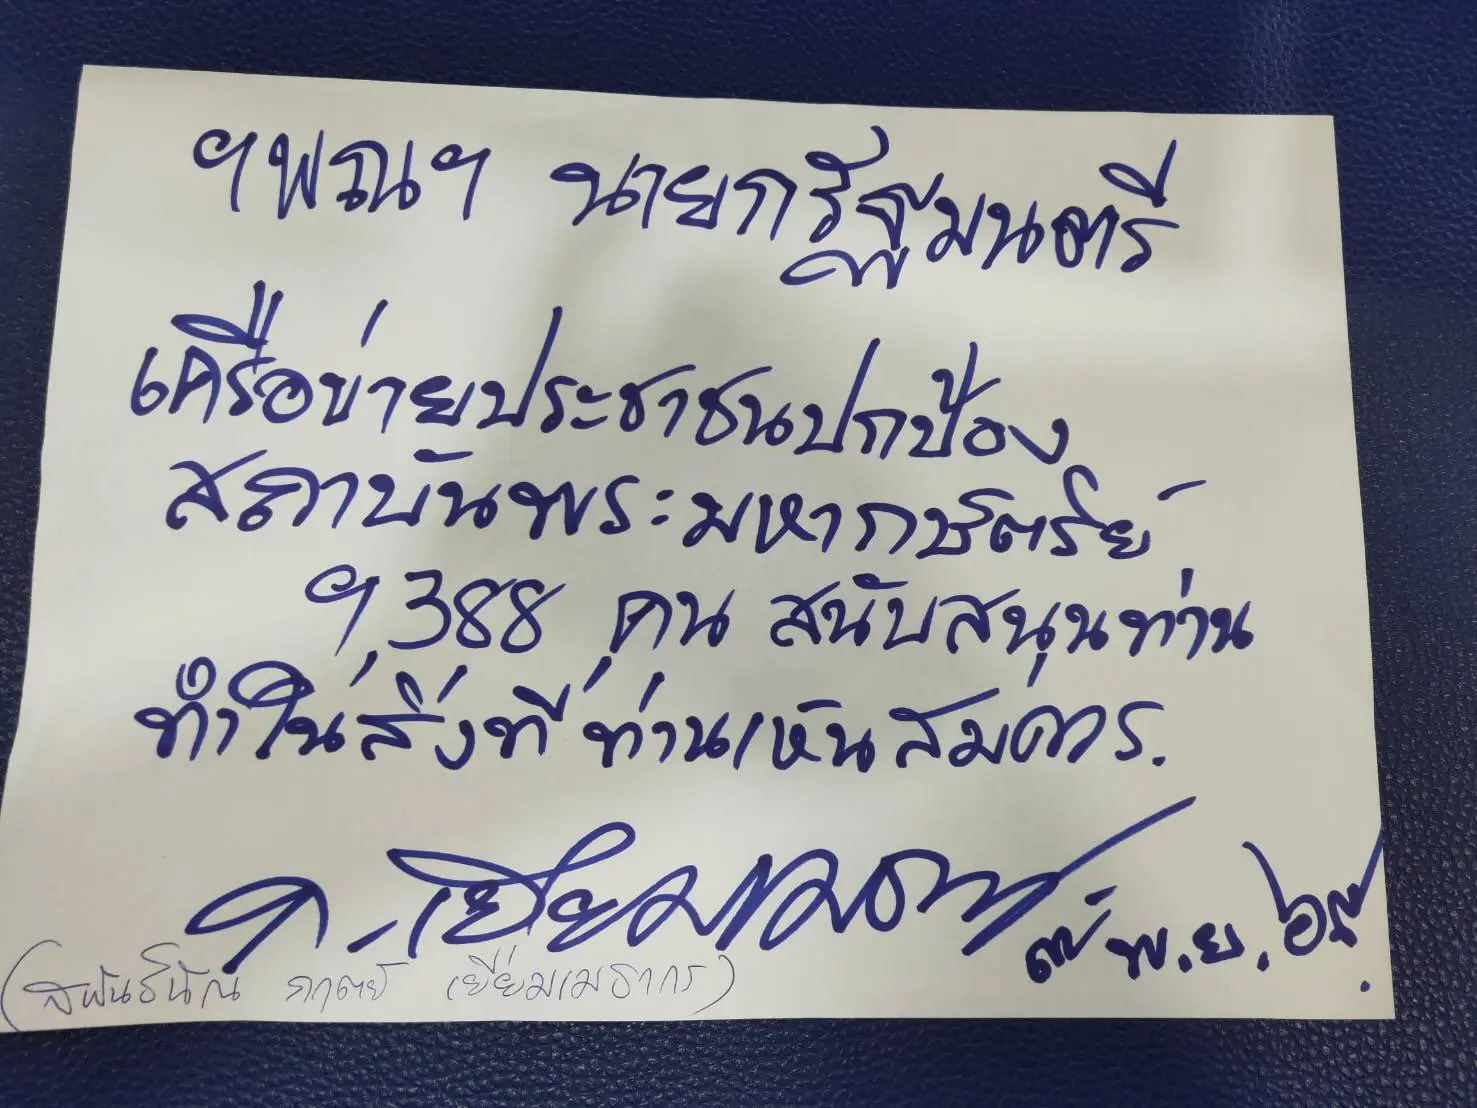 ฯพณฯ นายกรัฐมนตรี
เครือข่ายประชาชนปกป้อง
สถาบันพระมหากษัตริย์
9,388 คน สนับสนุนท่าน
ทำในสิ่งที่ท่านเห็นสมควร.
ก. เยี่ยมเมธากร
พ.ย.
เยี่ยมเมธากร)